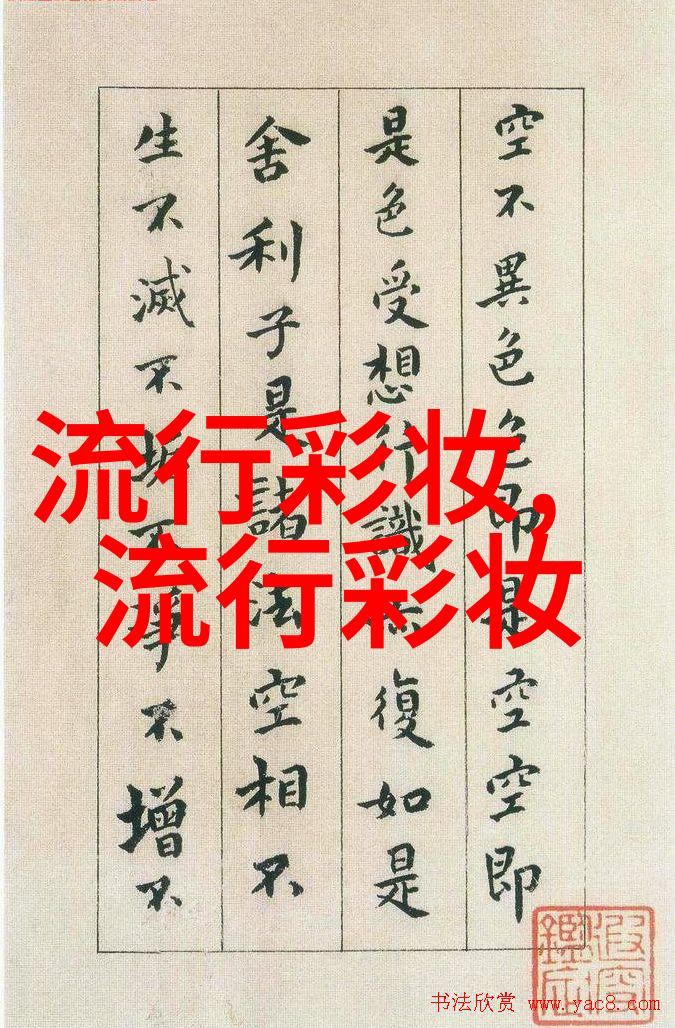 空不異色色即是空空即
是色受想行識亦復如是
舍利子是諸法空相不
生不滅不垢不淨不增不
流行彩妆,
流行彩妆
书法欣赏 www.yac8.com